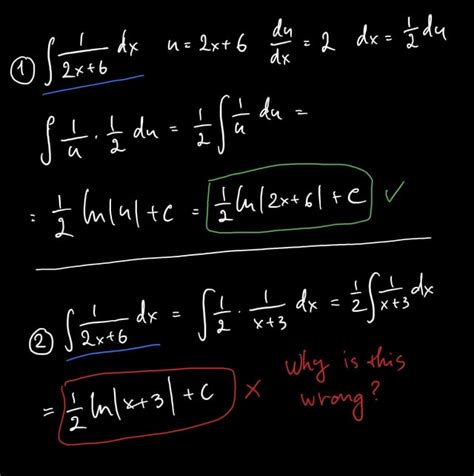 ① ∫ 1/(2x+6) dx   u = 2x+6   du/dx = 2   dx = 1/2 du
∫ 1/u · 1/2 du = 1/2 ∫ 1/u du =
= 1/2 ln|u| + c = 1/2 ln|2x+6| + c ✓
② ∫ 1/(2x+6) dx = ∫ 1/2 · 1/(x+3) dx = 1/2 ∫ 1/(x+3) dx
= 1/2 ln|x+3| + c ✗ Why is this
wrong?